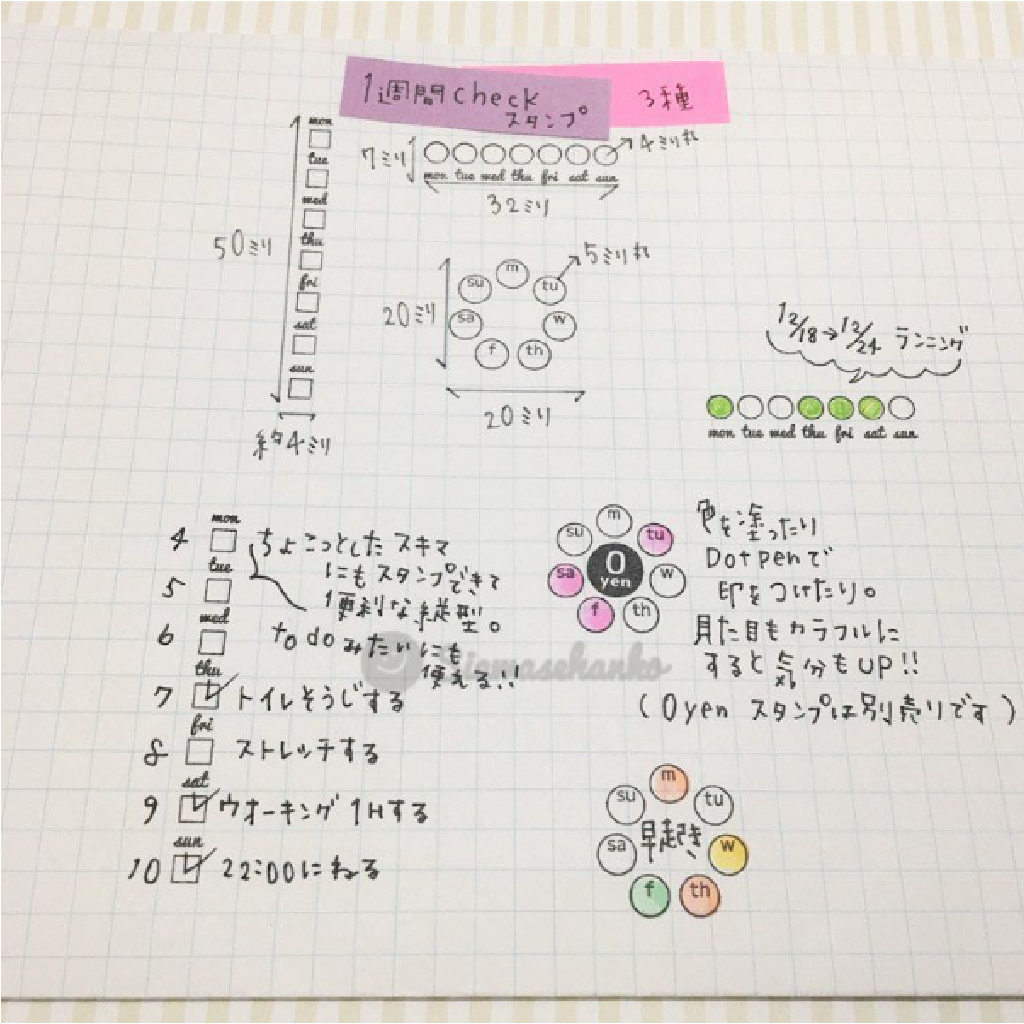 1週間check
スタンプ
3種
mon
tue
wed
thu
fri
sat
sun
50ミリ
約4ミリ
7ミリ
4ミリ丸
mon tue wed thu fri sat sun
32ミリ
20ミリ
m
tu
w
th
f
sa
su
5ミリ丸
20ミリ
12/18→12/24 ランニング
mon tue wed thu fri sat sun
mon
4 ちょこっとしたスキマ
にもスタンプできて
便利な縦型。
tue
5
to doみたいにも
使える!!
wed
6
thu
7 トイレそうじする
fri
8 ストレッチする
sat
9 ウオーキング1Hする
sun
10 22:00にねる
m
tu
w
th
f
sa
su
0
yen
色を塗ったり
Dotpenで
印をつけたり。
見た目もカラフルに
すると気分もUP!!
(0yen スタンプは別売りです)
m
tu
w
th
f
sa
su
早起き